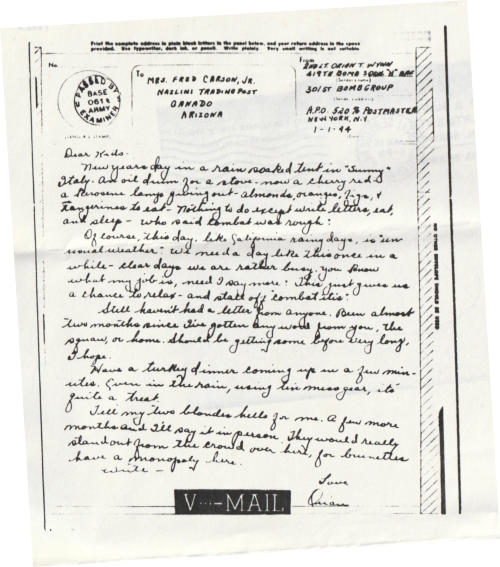 Print the complete address in plain block letters in the panel below, and your return address in the space
provided. Use typewriter, dark ink, or pencil. Write plainly. Very small writing is not suitable.
No.
PASSED BY
BASE
0618
ARMY
EXAMINER
(CENSOR'S STAMP)
To
MRS. FRED CARSON, JR.
NAZLINI TRADING POST
GANADO
ARIZONA
From
2ND LT. ORIAN T. WYNN
419TH BOMB SQDN. "H" BAR
(Sender's name)
301ST BOMB GROUP
(Sender's address)
A.P.O. 520 % POSTMASTER
NEW YORK, N.Y.
1-1-44
Dear Kids-
New years day in a rain soaked tent in "Sunny"
Italy. An oil drum for a stove - now a cherry red &
a kerosene lamp giving out - almonds, oranges, figs, &
tangerines to eat - Nothing to do except write letters, eat,
and sleep - who said combat was rough?
Of course, this day, like California rainy days, is "un
usual weather." We need a day like this once in a
while - clear days we are rather busy. You know
what my job is, need I say more? This just gives us
a chance to relax - and stall off "combatitis".
Still haven't had a letter from anyone. Been almost
two months since I've gotten any word from you, the
squaw, or home. Should be getting some before very long,
I hope.
Have a turkey dinner coming up in a few min-
utes. Even in the rain, using tin mess gear, it's
quite a treat.
Tell my two blondes hello for me. A few more
months and I'll say it in person. They would really
stand out from the crowd over here, for brunettes
have a monopoly here.
Write -
Love
Orian
V···—MAIL